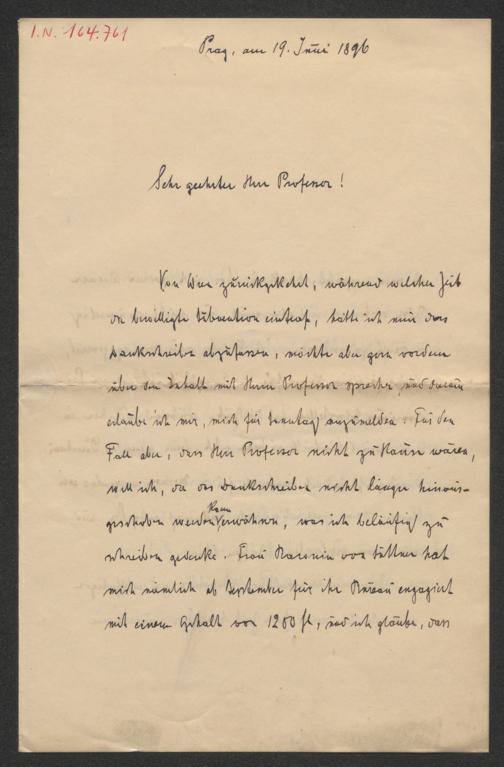 I.N. 164.761
Prag, am 19. Juni 1896
Sehr geehrter Herr Professor!
Von Wien zurückgekehrt, während welcher Zeit
die bewilligte Subvention eintraf, hätte ich nun das
Dankschreiben abzufassen, möchte aber gern vordem
über den Inhalt mit Herrn Professor sprechen, und darum
erlaube ich mir, mich für Sonntag anzumelden. Für den
Fall aber, dass Herr Professor nicht zu Hause wären,
will ich, da das Dankschreiben nicht länger hinaus-
geschoben werden kann, erwähnen, was ich beiläufig zu
schreiben gedenke. Frau Baronin von Suttner hat
mich nämlich ab September für ihr Bureau engagiert
mit einem Gehalt von 1200 fl, und ich glaube, dass